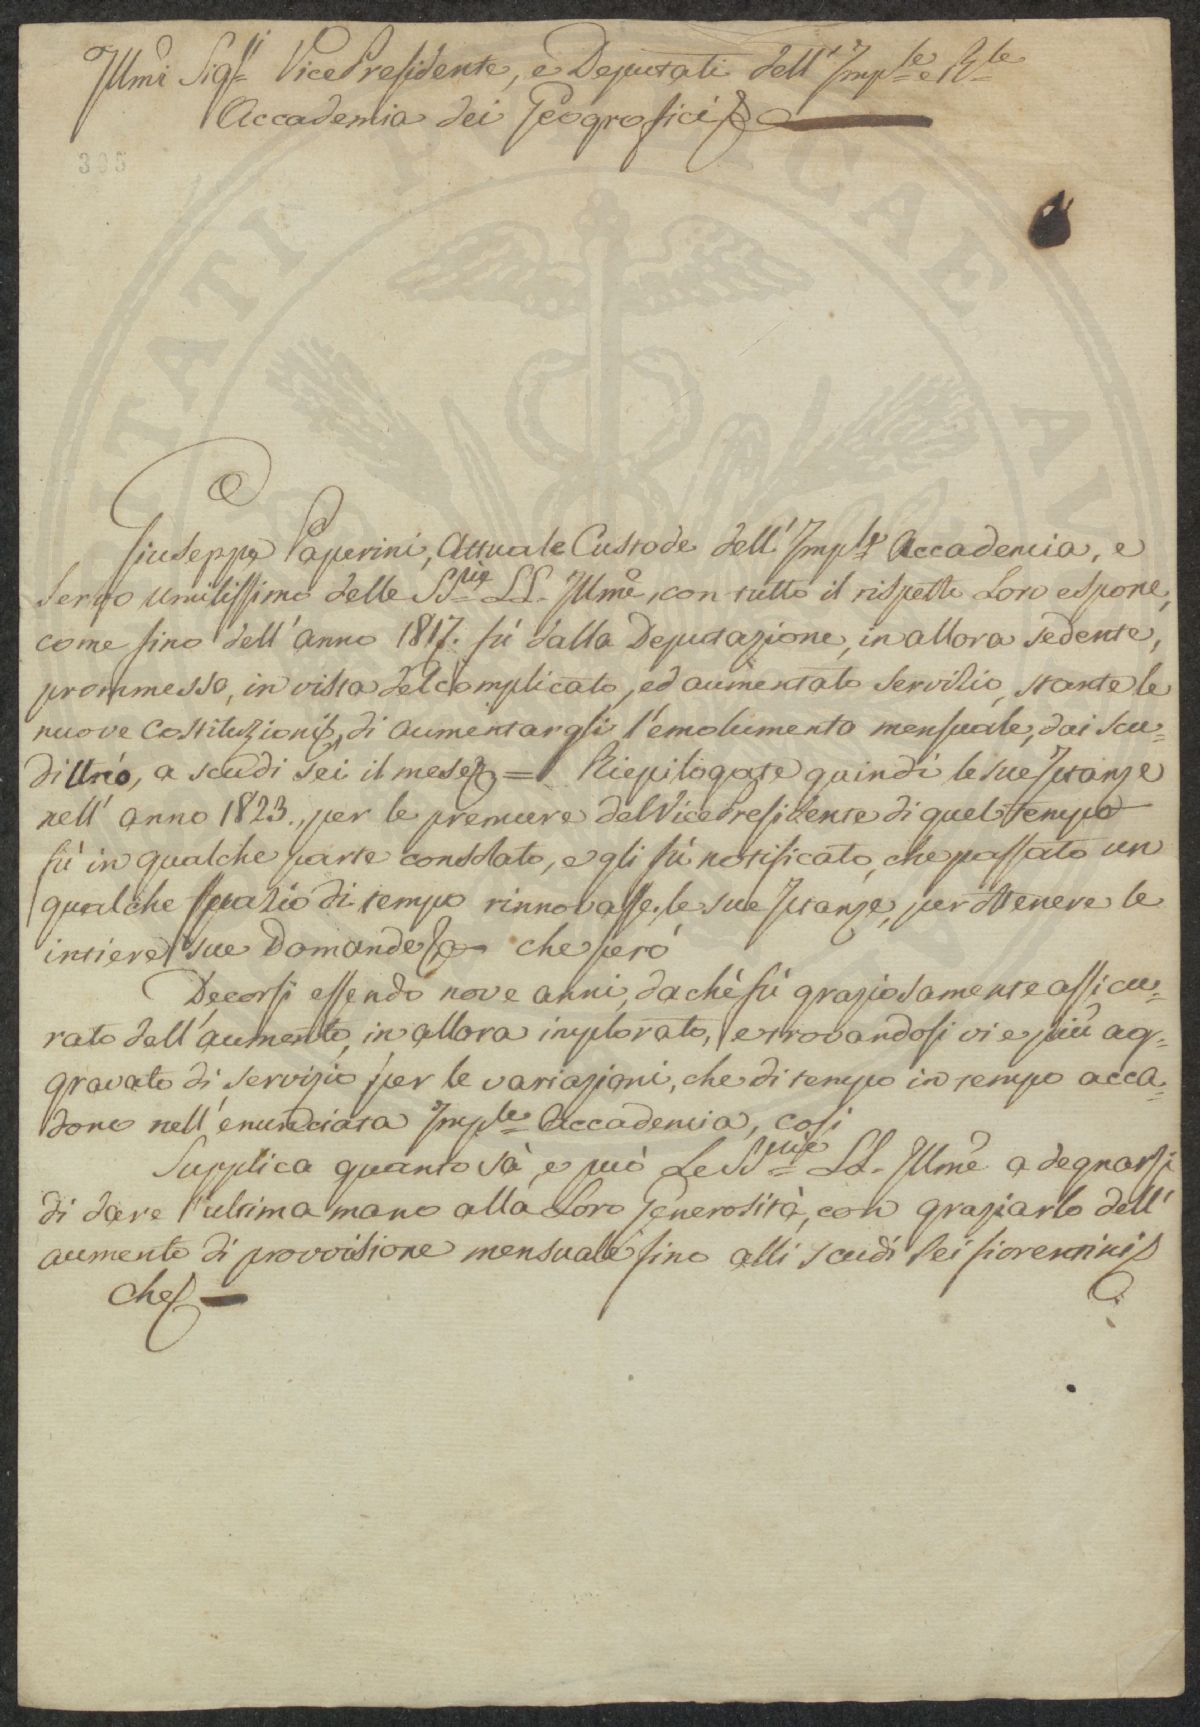 Illmi Sigri VicePresidente, e Deputati dell'Imple e Rle
Accademia dei Geogrofici
305
Giuseppe Paperini, Attuale Custode dell'Imple Accademia, e
Servo umilissimo delle SSrie LL. Illme, con tutto il rispetto Loro espone,
come fino dell'anno 1817. fù dalla Deputazione, in allora sedente,
prommesso, in vista del complicato, ed aumentato servizio, stante le
nuove Costituzioni, di aumentargli l'emolumento mensuale, dai scu=
di , a scudi sei il mese = Riepilogate quindi le sue Istanze
nell'anno 1823., per le premure del VicePresidente di quel tempo
fù in qualche parte consolato, e gli fù notificato, che passato un
qualche spazio di tempo rinnovasse, le sue Istanze, per ottenere le
intiere sue Domande che però
Decorsi essendo nove anni, dachè fù graziosamente assicu=
rato dell'aumento, in allora implorato, e trovandosi vie più ag=
gravato di servizio per le variazioni, che di tempo in tempo acca=
dono nell'enunciata Imple Accademia, così
Supplica quanto sà, e può Le SSrie LL. Illme a degnarsi
di dare l'ultima mano alla Loro Generosità, con graziarlo dell'
aumento di provvisione mensuale fino alli scudi sei fiorentini
Che